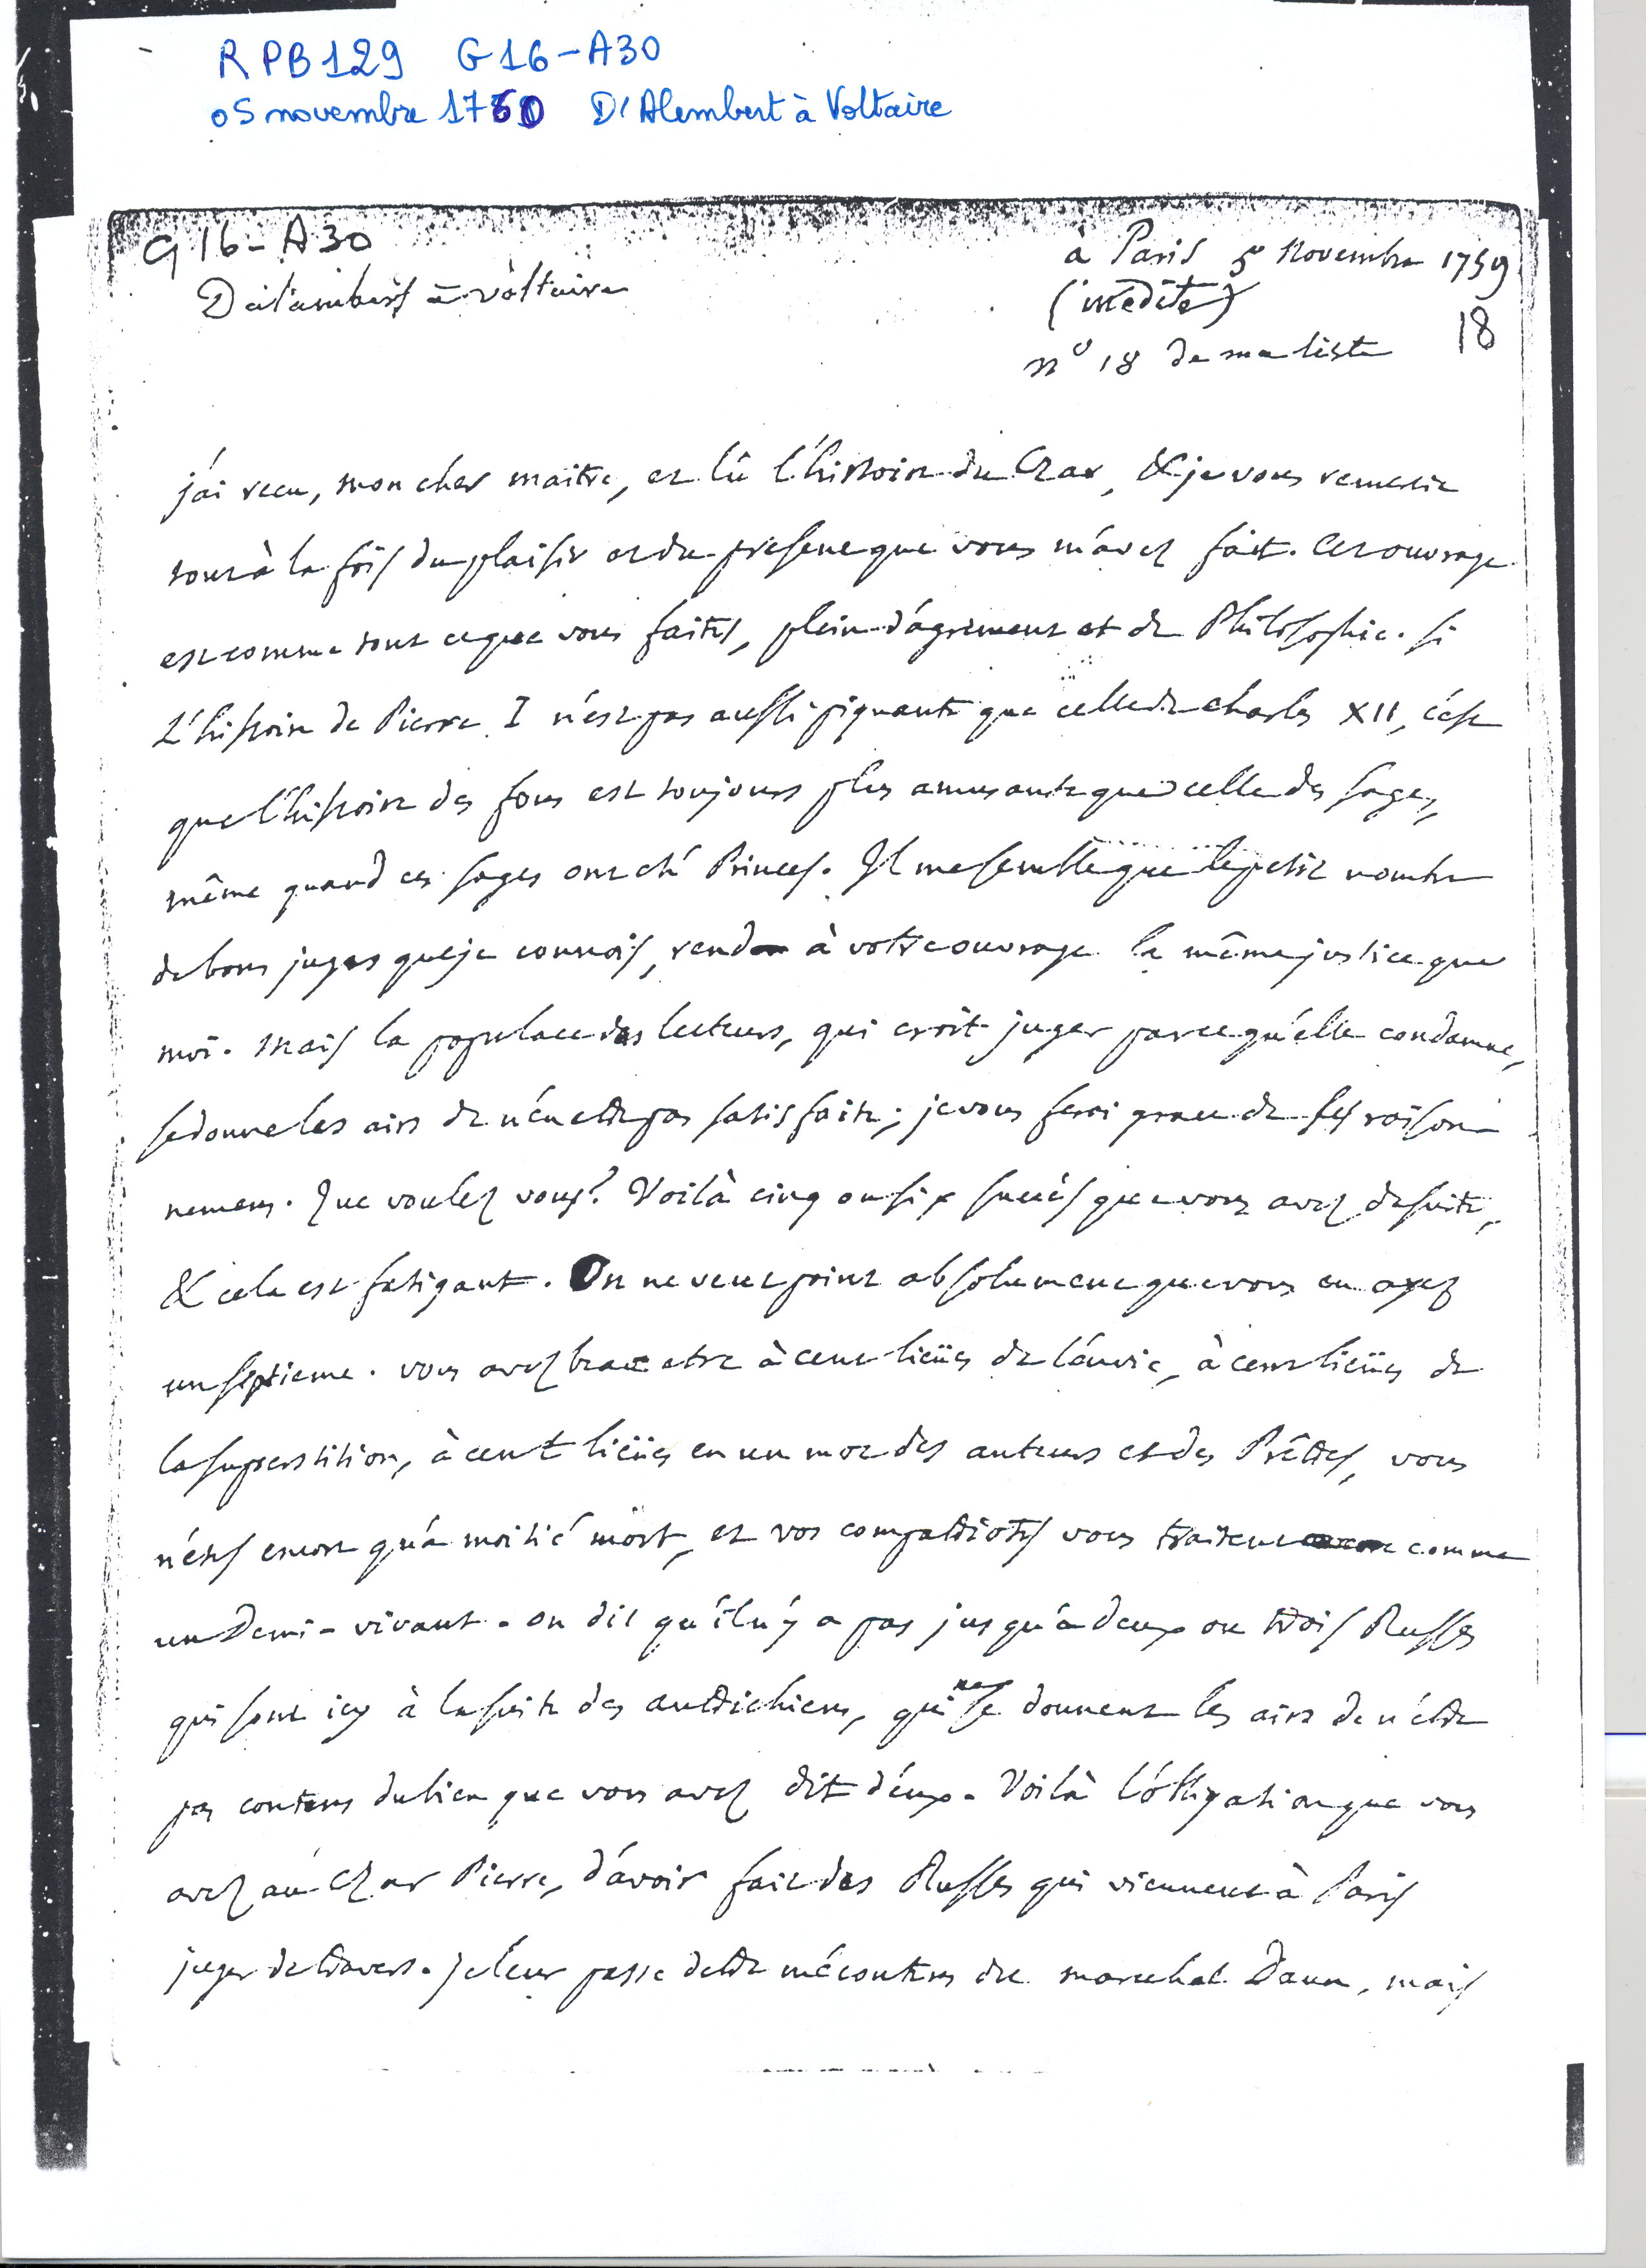 RPB129 G16-A30
05 novembre 1760 D'Alembert à Voltaire
G16-A30
à Paris 5 Novembre 1759
D'alembert à voltaire
(inédite)
18
n° 18 de ma liste
j'ai recu, mon cher maitre, et lû l'histoire du Czar, & je vous remercie
tout à la fois du plaisir et du present que vous m'avez fait. Cet ouvrage
est comme tout ce que vous faites, plein d'agrément et de Philosophie. si
L'histoire de Pierre I n'est pas aussi piquante que celle de Charles XII, c'est
que l'histoire des fous est toujours plus amusante que celle des sages,
même quand ces sages ont eté Princes. Il me semble que le petit nombre
de bons juges que je connois, rend à votre ouvrage la même justice que
moi. Mais la populace des lecteurs, qui croit juger parce qu'elle condamne,
se donne les airs de n'en etre pas satisfaite; je vous ferai grace de ses raison-
nemens. Que voulez vous? Voilà cinq ou six succès que vous avez de suite,
& cela est fatigant. On ne veut point absolument que vous en ayez
un septieme. vous avez beau etre à cent lieües de l'envie, à cent lieües de
la superstition, à cent lieües en un mot des auteurs et des Prêtres, vous
n'etes encore qu'à moitié mort, et vos compatriotes vous traitent comme
un Demi-vivant. on dit qu'il n'y a pas jusqu'à deux ou trois Russes
qui sont icy à la suite des autrichiens, qui ne se donnent les airs de n'être
pas contens du bien que vous avez dit d'eux. Voilà l'obligation que vous
avez au Czar Pierre, d'avoir fait des Russes qui viennent à Paris
juger de travers. Je leur passe d'etre mécontens du marechal Daun, mais